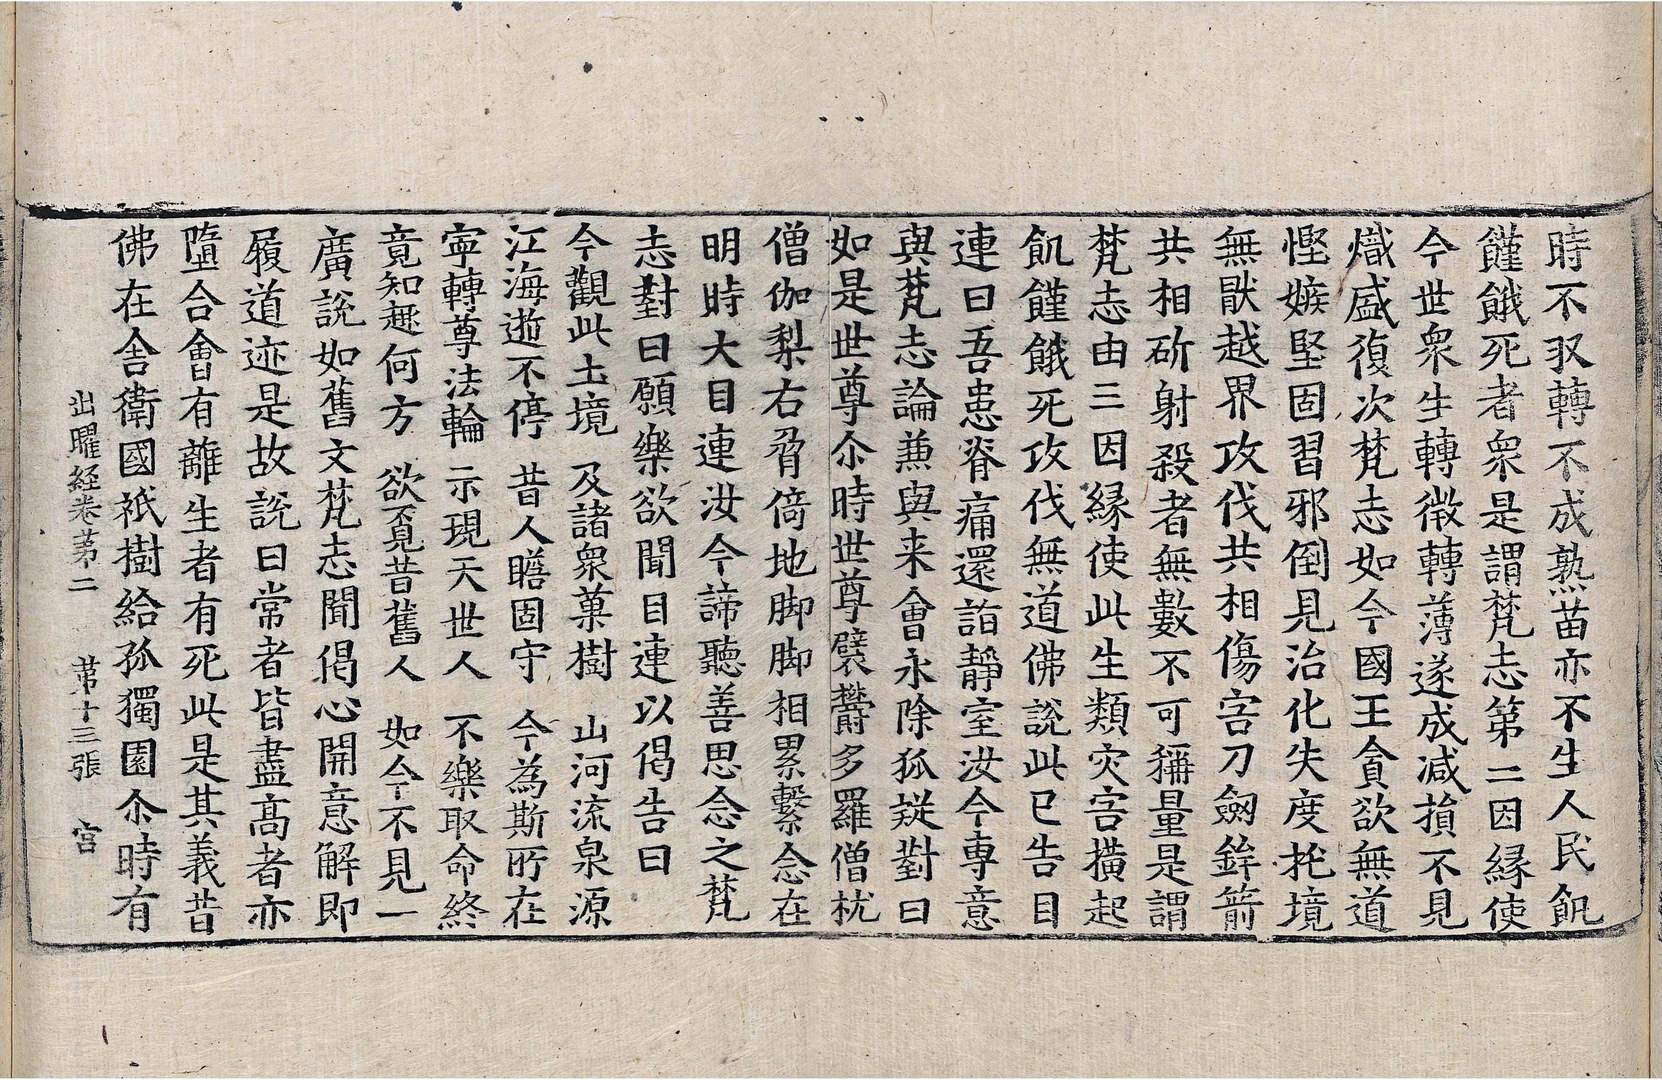 時不収轉不成熟苗亦不生人民飢
饉餓死者衆是謂梵志第二因縁使
今世衆生轉微轉薄遂成减損不見
熾盛復次梵志如今國王貪欲無道
慳嫉堅固習邪倒見治化失度抂境
無猒越界攻伐共相傷害刀劔鉾箭
共相斫射殺者無數不可稱量是謂
梵志由三因縁使此生類灾害橫起
飢饉餓死攻伐無道佛說此已告目
連曰吾患脊痛還詣靜室汝今專意
與梵志論兼與来會永除狐疑對曰
如是世尊尒時世尊襞欝多羅僧枕
僧伽梨右脅倚地脚脚相累繫念在
明時大目連汝今諦聽善思念之梵
志對曰願樂欲聞目連以偈告曰
今觀此土境　及諸衆菓樹　山河流泉源
江海逝不停　昔人瞻固守　今為斯所在
寜轉尊法輪　示現天世人　不樂取命終
竟知趣何方　欲覓昔舊人　如今不見一
廣說如舊文梵志聞偈心開意解即
履道迹是故說曰常者皆盡髙者亦
墮合會有離生者有死此是其義昔
佛在舍衛國祇樹給孤獨園尒時有
出曜経卷苐二　苐十三張　宫